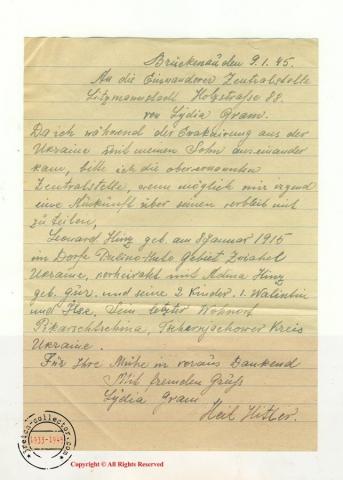 Brückenau den 9.1.45.
An die Einwanderer Zentralstelle
Litzmannstadt Holzstraße 88.
von Lydia Gram.
Da ich während der Evakuirung aus der
Ukraine mit meinen Sohn auseinander
kam, bitte ich die obenernannten
Zentralstelle, wenn möglich mir irgend
eine Auskunft über seinen verbleib mit
zuteilen,
Leonard Hinz geb. am 8 Januar 1915
im Dorfe Gebiet Zwiahel
Ukraine, verheiratet mit Adina Hinz
geb. und seine 2 Kinder. 1. Walentin
und Ilse, Sein letzter Wohnort
Kreis
Ukraine.
Für Ihre Mühe in voraus Dankend
Mit fremden Gruß
Lydia Gram
Heil Hitler.
1933-1945
Copyright © All Rights Reserved